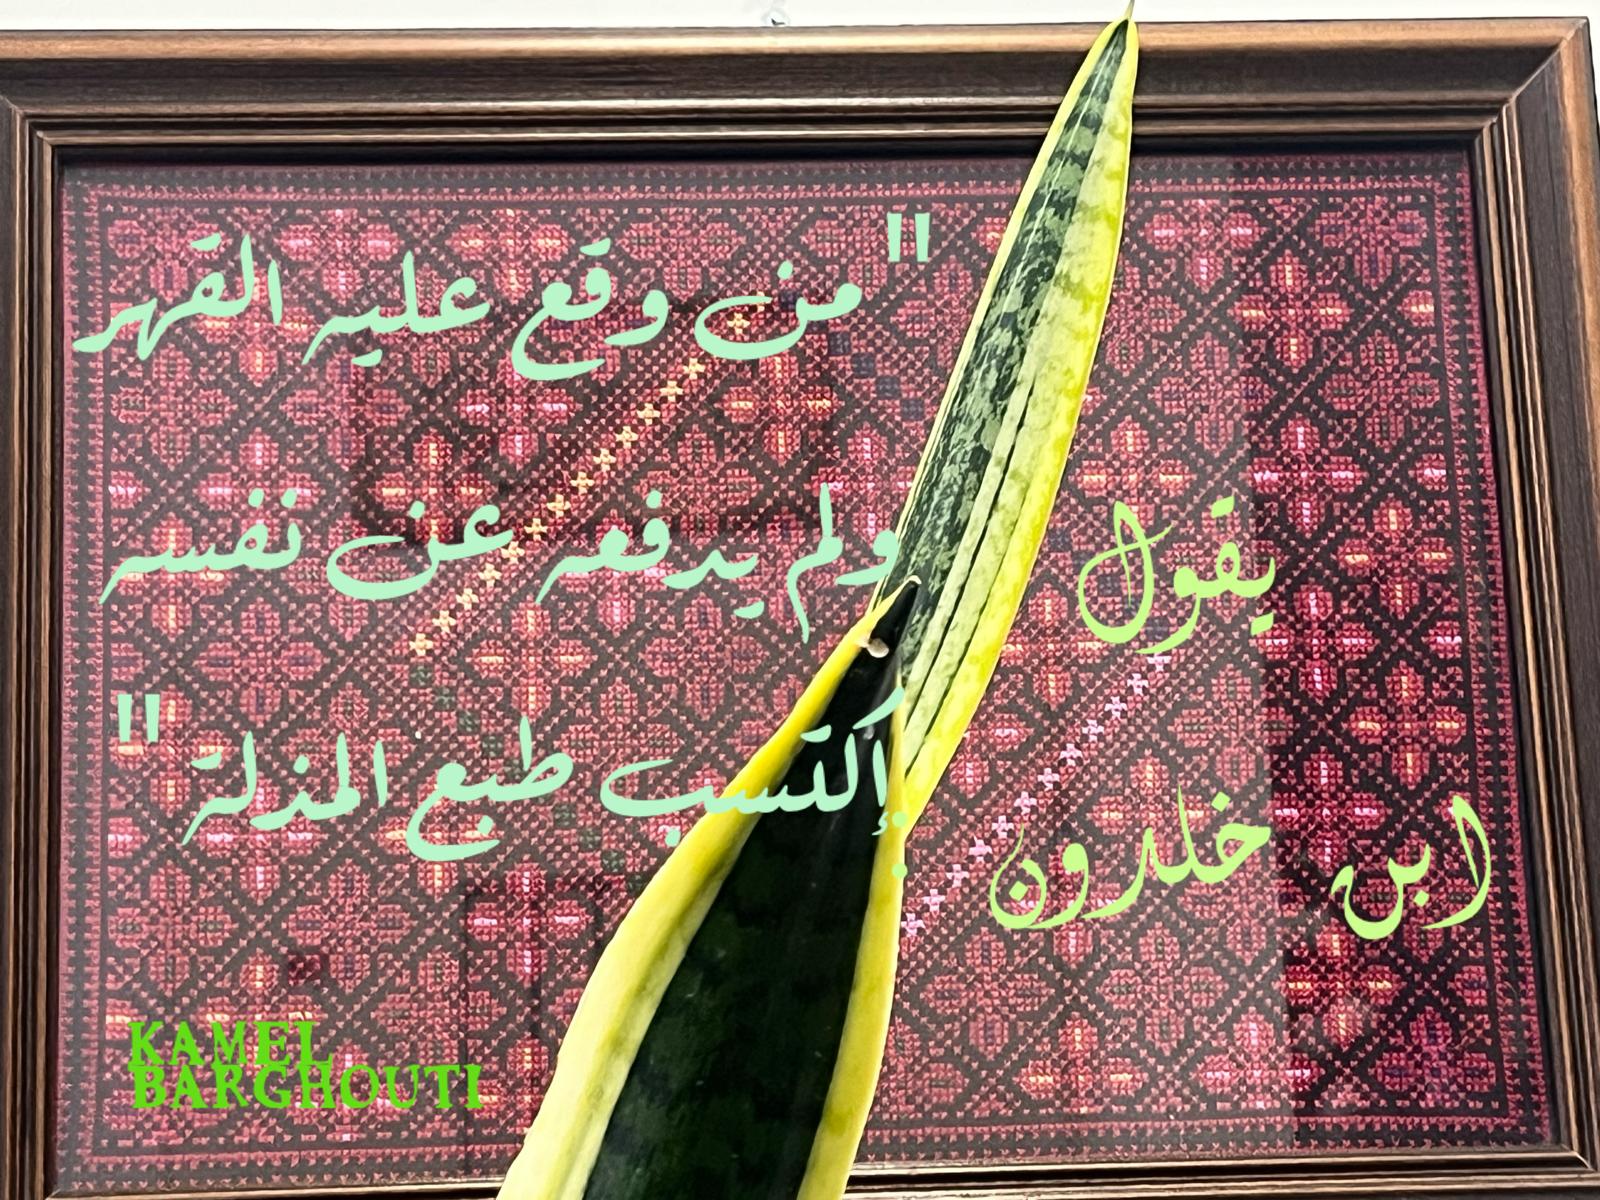 يقول
ابن خلدون
"من وقع عليه القهر
ولم يدفعه عن نفسه
إكتسب طبع المذلة"
KAMEL
BARGHOUTI